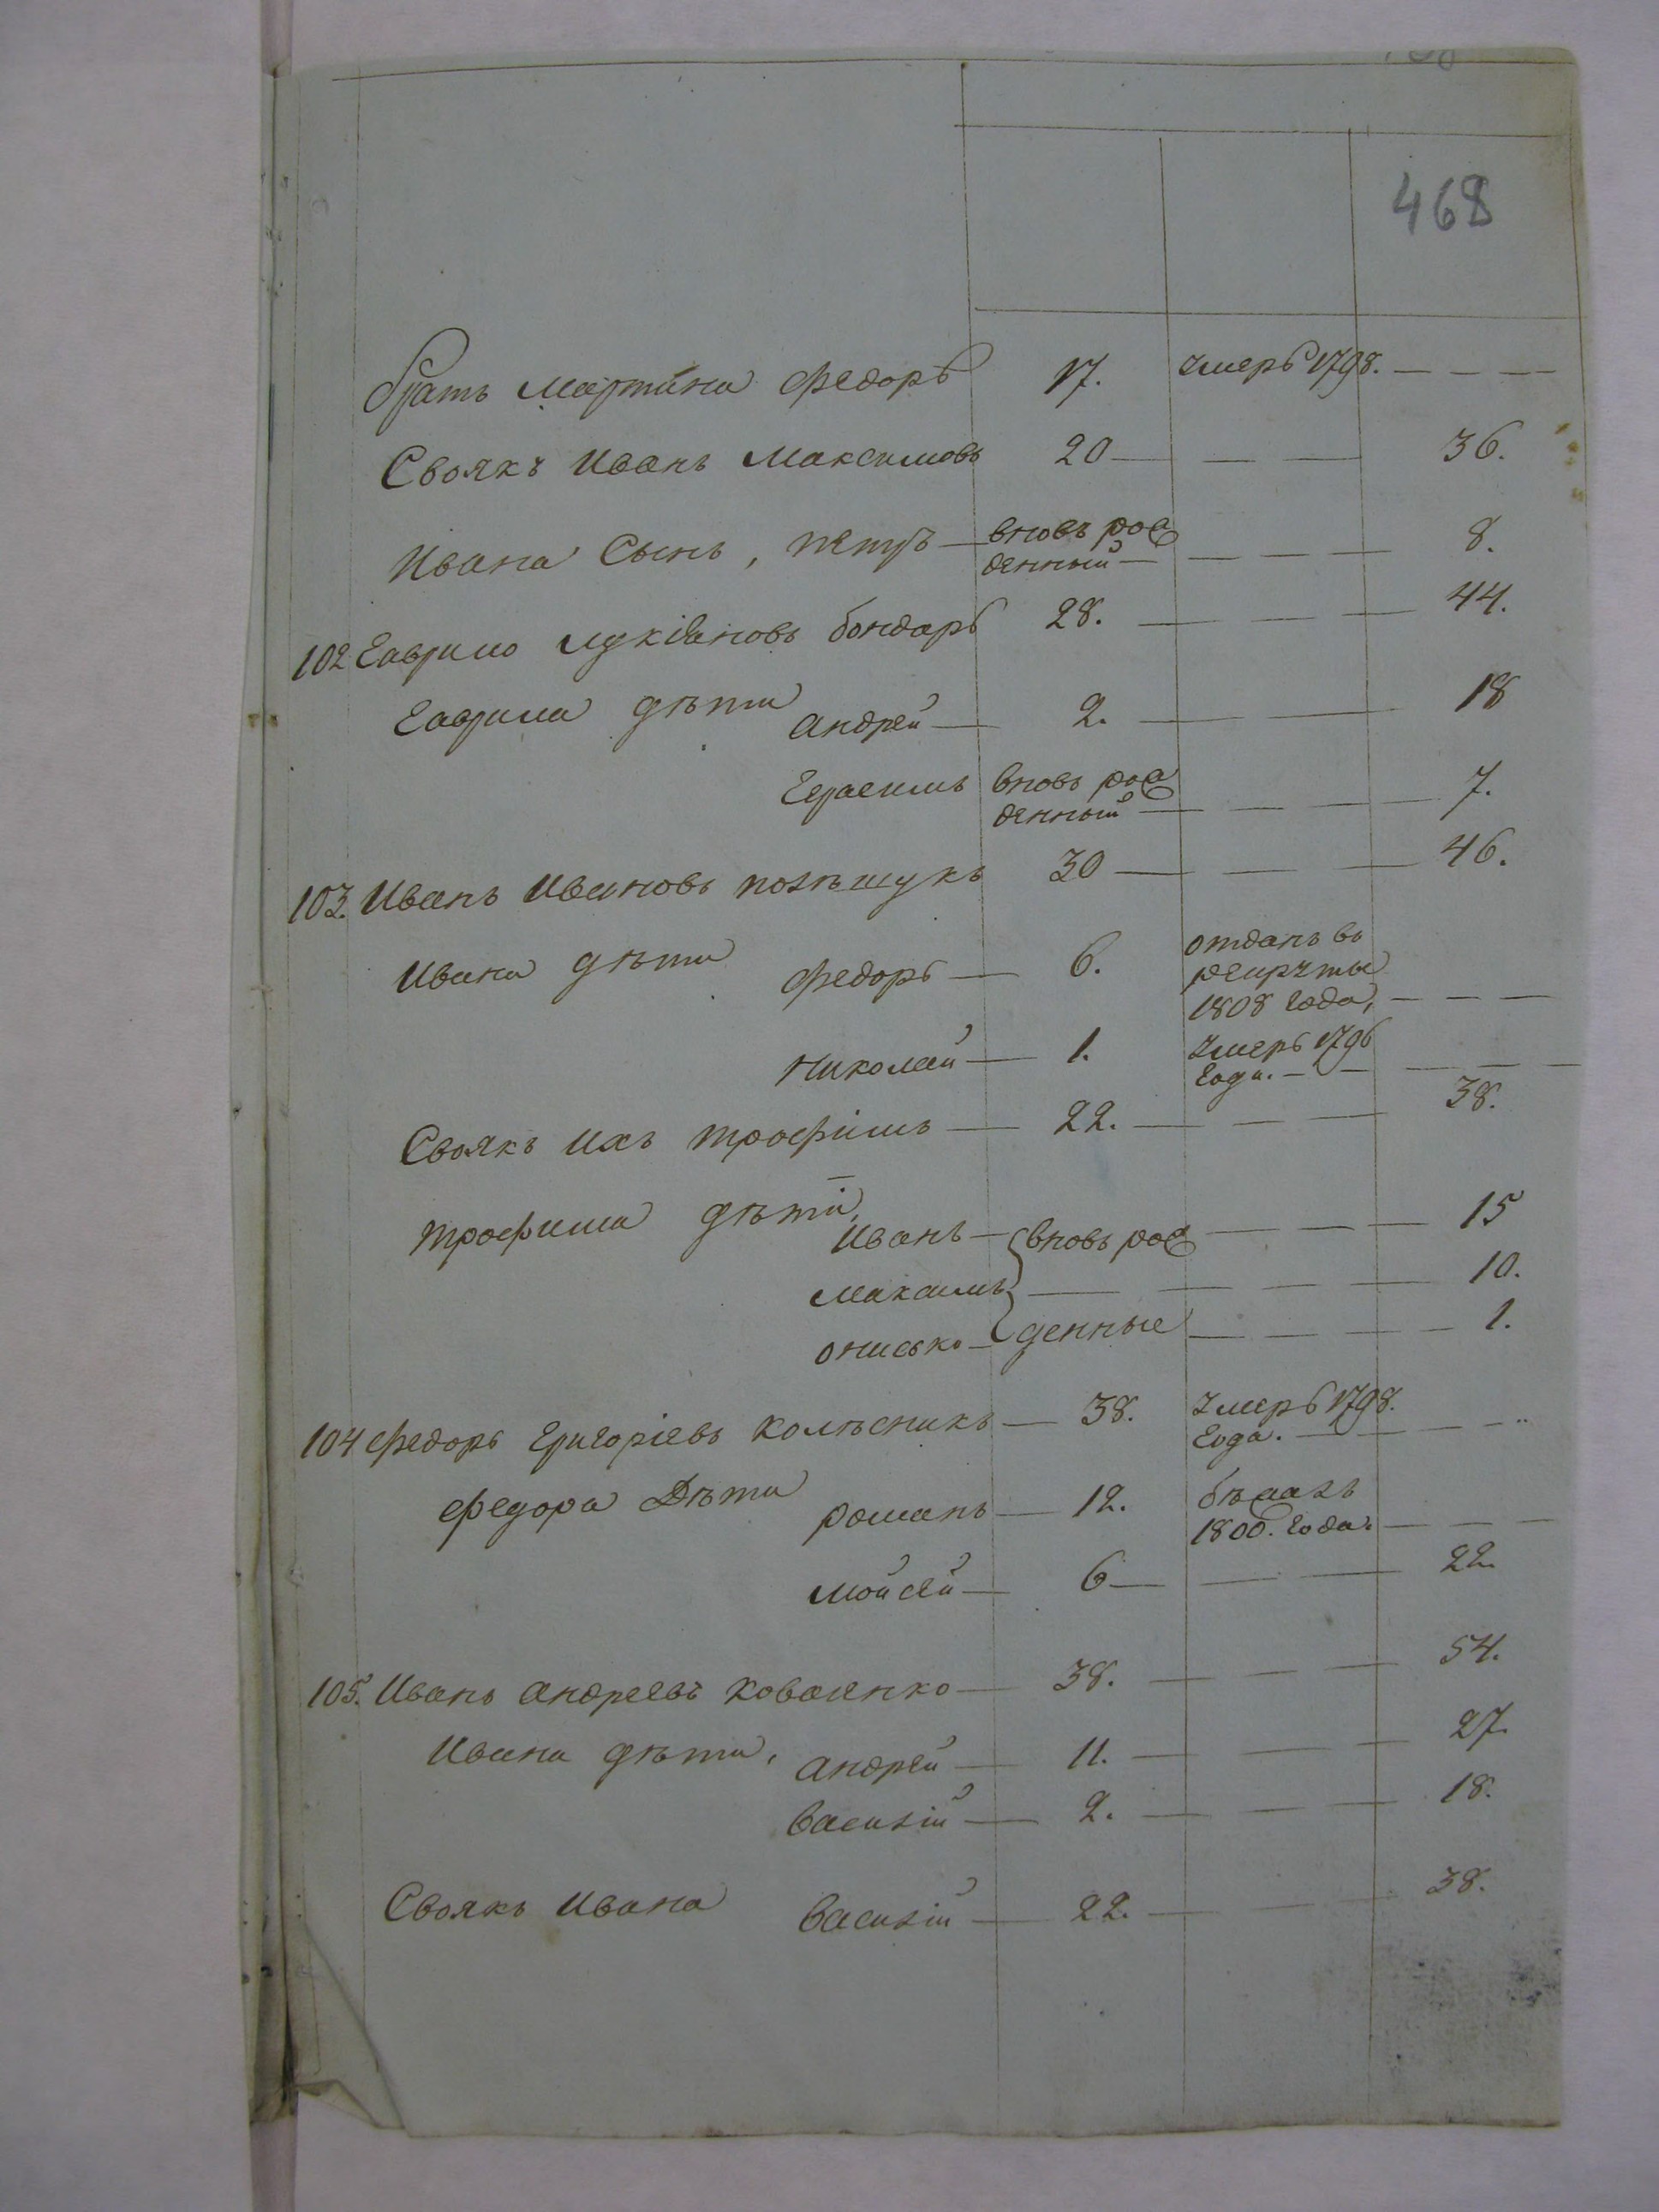 468
братъ мартина федоръ 17. умеръ 1798. — — —
Своякъ Иванъ Максимовъ 20 — — — 36.
Ивана Сынъ, петръ — вновь рож
денный — — — — 8.
102 Гаврило лукіановъ бондарь 28. — — — 44.
Гаврила дѣти андрей — 2. — — — 18
Герасимъ вновь рож
денный — — — — 7.
103. Иванъ Ивановъ полѣщукъ 30 — — — 46.
Ивана дѣти федоръ — 6. отданъ въ
рекруты
1808 года, — — —
Николай — 1. умеръ 1796
года. — — — — —
Своякъ ихъ трофимъ — 22. — — — 38.
трофима дѣти, Иванъ — вновь рож — — — 15
максимъ — — — — 10.
онисько — денные — — — — 1.
104 федоръ Григоріевъ колѣсникъ — 38. умеръ 1798.
года. — — — —
федора Дѣти романъ — 12. бѣжалъ
1800. года. — — —
мойсей — 6 — — — 22.
105. Иванъ андреевъ коваленко — 38. — — — 54.
Ивана дѣти, андрей — 11. — — — 27.
василій — 2. — — — 18.
Своякъ Ивана василій — 22. — — — 38.